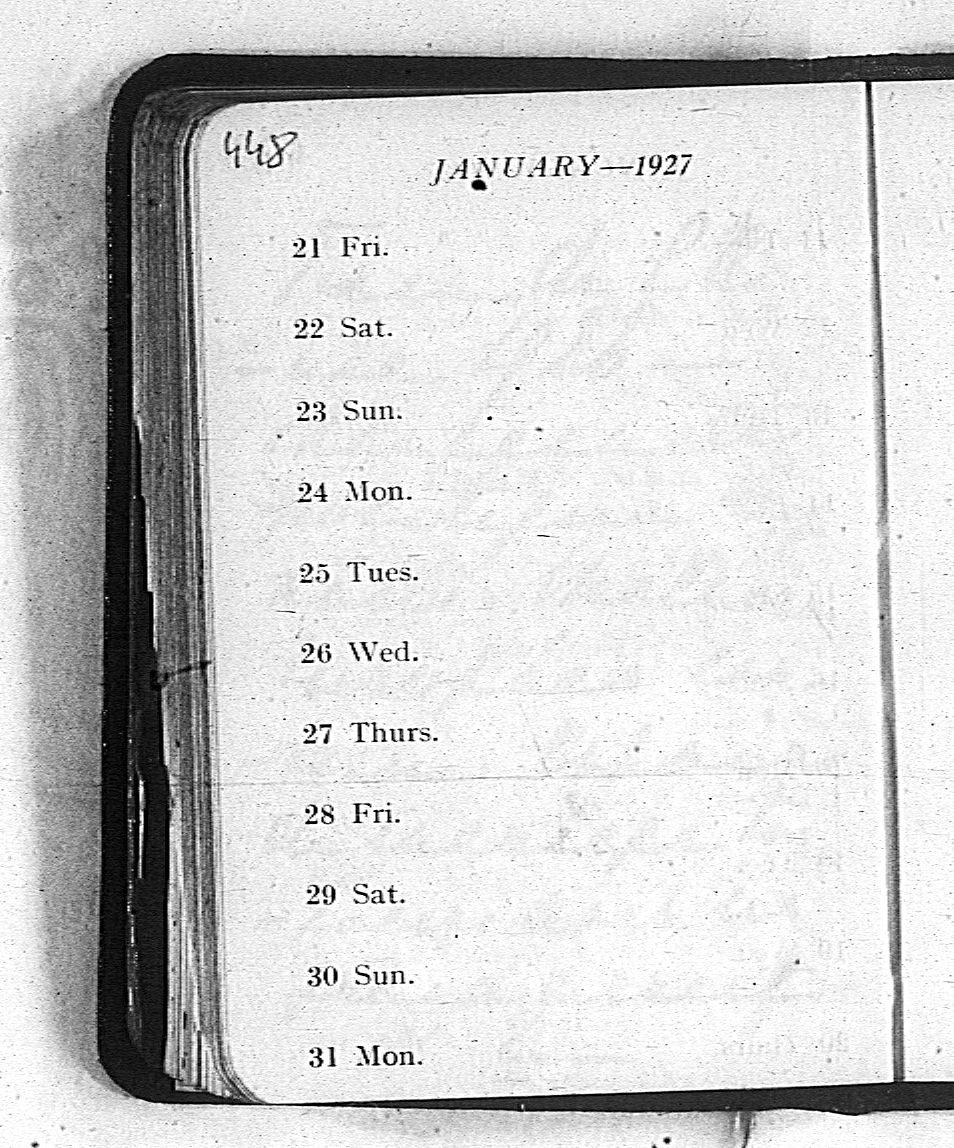 448
JANUARY—1927
21 Fri.
22 Sat.
23 Sun.
24 Mon.
25 Tues.
26 Wed.
27 Thurs.
28 Fri.
29 Sat.
30 Sun.
31 Mon.